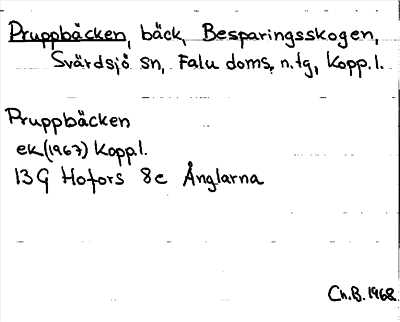 Pruppbäcken, bäck, Besparingsskogen,
Svärdsjö sn, Falu doms. n. tg, Kopp. l.
Pruppbäcken
ek (1967) Kopp l.
13G Hofors 8c Änglarna
Ch.B. 1968